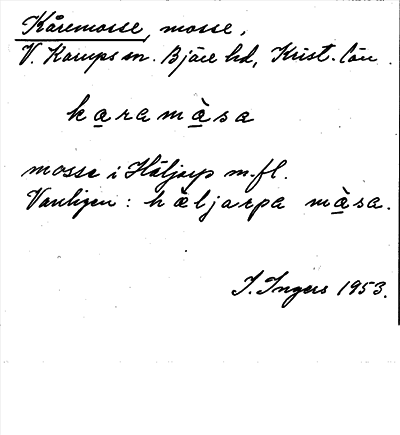 Kåremosse, mosse,
V. Karups sn. Bjäre hd, Krist. län.
karamàsa
mosse i Häljarp m.fl.
Vanligen: hæljarpa màsa.
I. Ingers 1953.